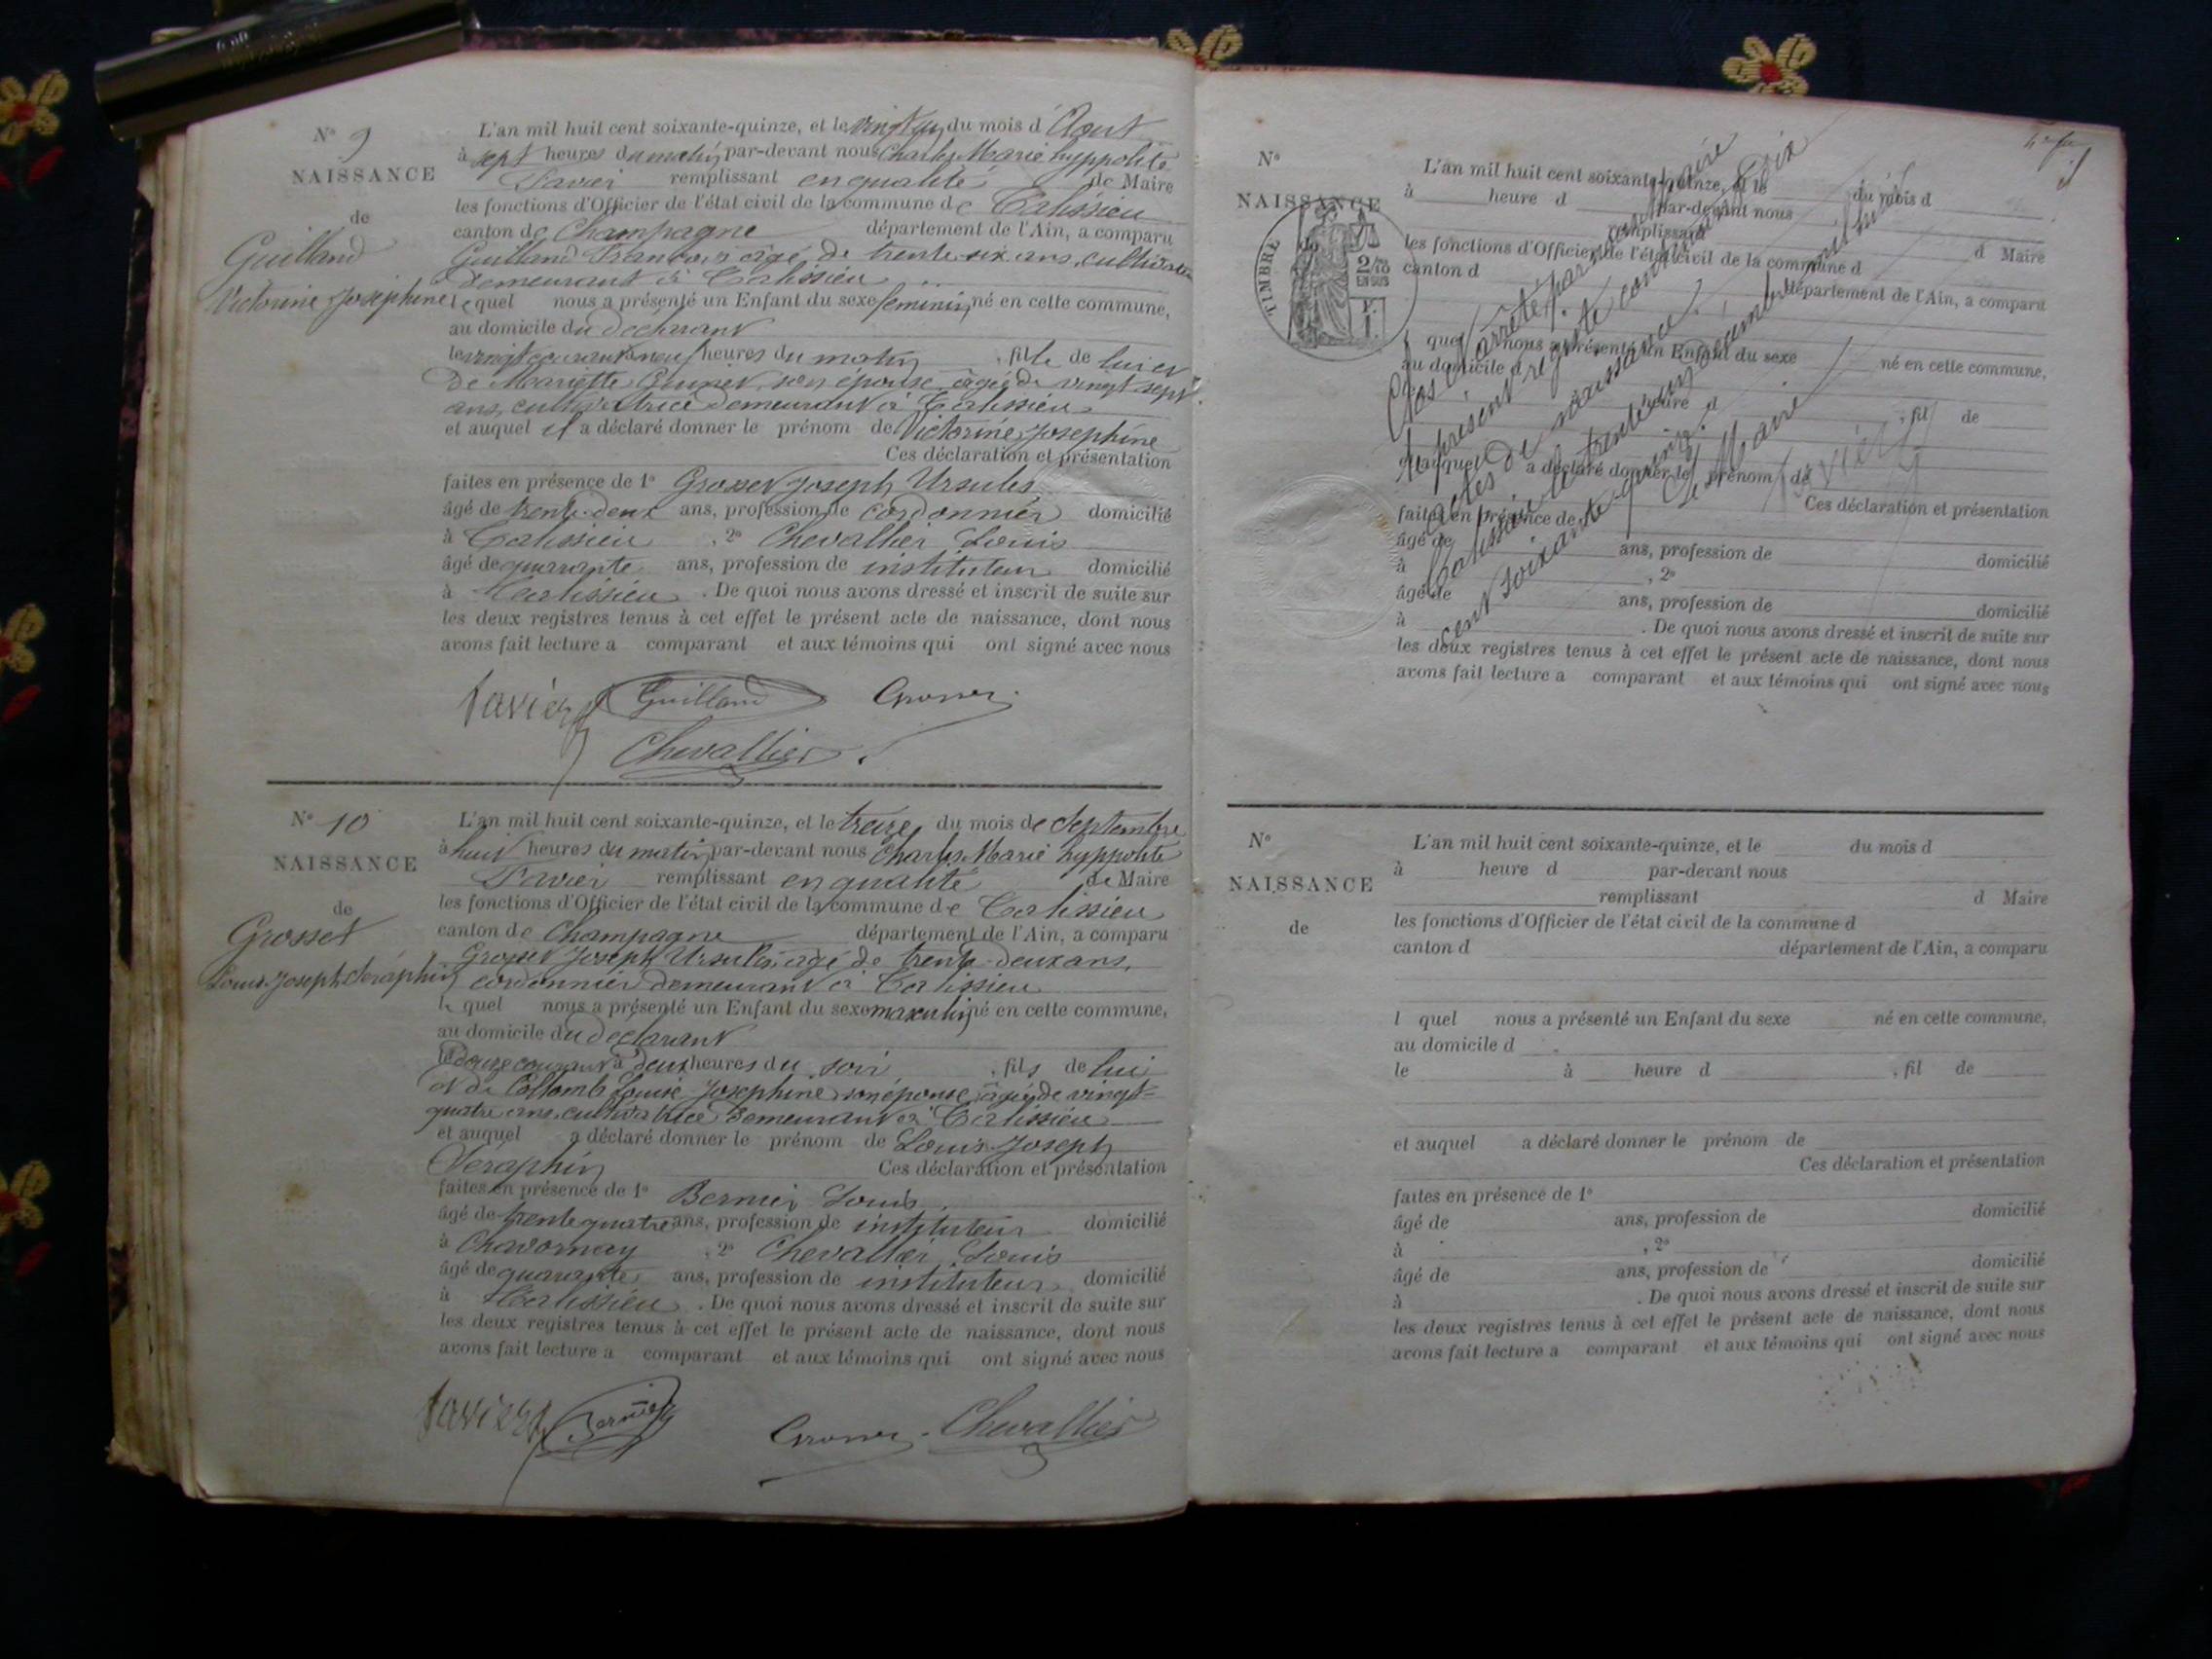 N° 9
NAISSANCE
de
Guilland
Victorine Josephine
L'an mil huit cent soixante-quinze, et le vingt un du mois d'Aout
à sept heures du matin par-devant nous Charles Marie hyppolite
Favier remplissant en qualité de Maire
les fonctions d'Officier de l'état civil de la commune de Talissieu
canton de Champagne département de l'Ain, a comparu
Guilland François âgé de trente six ans, cultivateur
demeurant à Talissieu
lequel nous a présenté un Enfant du sexe feminin né en cette commune,
au domicile du declarant
le vingt courant à neuf heures du matin, fille de lui et
de Mariette son épouse âgée de vingt sept
ans, cultivatrice demeurant à Talissieu
et auquel il a déclaré donner le prénom de Victorine Josephine
Ces déclaration et présentation
faites en présence de 1° Grosset Joseph Ursules
âgé de trente-deux ans, profession de cordonnier domicilié
à Talissieu, 2° Chevallier Louis
âgé de quarante ans, profession de instituteur domicilié
à Talissieu. De quoi nous avons dressé et inscrit de suite sur
les deux registres tenus à cet effet le présent acte de naissance, dont nous
avons fait lecture a comparant et aux témoins qui ont signé avec nous
Favier Guilland Grosset
Chevallier
N° 10
NAISSANCE
de
Grosset
Louis Joseph Séraphin
L'an mil huit cent soixante-quinze, et le treize du mois de Septembre
à huit heures du matin par-devant nous Charles Marie hyppolite
Favier remplissant en qualité de Maire
les fonctions d'Officier de l'état civil de la commune de Talissieu
canton de Champagne département de l'Ain, a comparu
Grosset Joseph Ursules, âgé de trente-deux ans,
cordonnier demeurant à Talissieu
lequel nous a présenté un Enfant du sexe masculin né en cette commune,
au domicile du declarant
le douze courant à deux heures du soir, fils de lui
et de Collomb Louise Josephine son épouse, âgée de vingt-
quatre ans, cultivatrice demeurant à Talissieu
et auquel a déclaré donner le prénom de Louis Joseph
Séraphin Ces déclaration et présentation
faites en présence de 1° Bernier Louis
âgé de trente quatre ans, profession de instituteur domicilié
à Chavornay, 2° Chevallier Louis
âgé de quarante ans, profession de instituteur domicilié
à Talissieu. De quoi nous avons dressé et inscrit de suite sur
les deux registres tenus à cet effet le présent acte de naissance, dont nous
avons fait lecture a comparant et aux témoins qui ont signé avec nous
Favier Bernier Grosset Chevallier
N°
NAISSANCE
de
TIMBRE
2/10
EN SUS
L'an mil huit cent soixante-quinze, et le du mois d
à heure d par-devant nous
remplissant d Maire
les fonctions d'Officier de l'état civil de la commune d
canton d département de l'Ain, a comparu
l quel nous a présenté un Enfant du sexe né en cette commune,
au domicile d
le à heure d, fil de
et auquel a déclaré donner le prénom de
Ces déclaration et présentation
faites en présence de 1°
âgé de ans, profession de domicilié
à, 2°
âgé de ans, profession de domicilié
à. De quoi nous avons dressé et inscrit de suite sur
les deux registres tenus à cet effet le présent acte de naissance, dont nous
avons fait lecture a comparant et aux témoins qui ont signé avec nous
Clos et arrêté par nous maire
le présent registre contenant dix
actes de naissance.
Talissieu le trente un Décembre mil huit
cent soixante quinze.
Le Maire
Favier
N°
NAISSANCE
de
L'an mil huit cent soixante-quinze, et le du mois d
à heure d par-devant nous
remplissant d Maire
les fonctions d'Officier de l'état civil de la commune d
canton d département de l'Ain, a comparu
l quel nous a présenté un Enfant du sexe né en cette commune,
au domicile d
le à heure d, fil de
et auquel a déclaré donner le prénom de
Ces déclaration et présentation
faites en présence de 1°
âgé de ans, profession de domicilié
à, 2°
âgé de ans, profession de domicilié
à. De quoi nous avons dressé et inscrit de suite sur
les deux registres tenus à cet effet le présent acte de naissance, dont nous
avons fait lecture a comparant et aux témoins qui ont signé avec nous